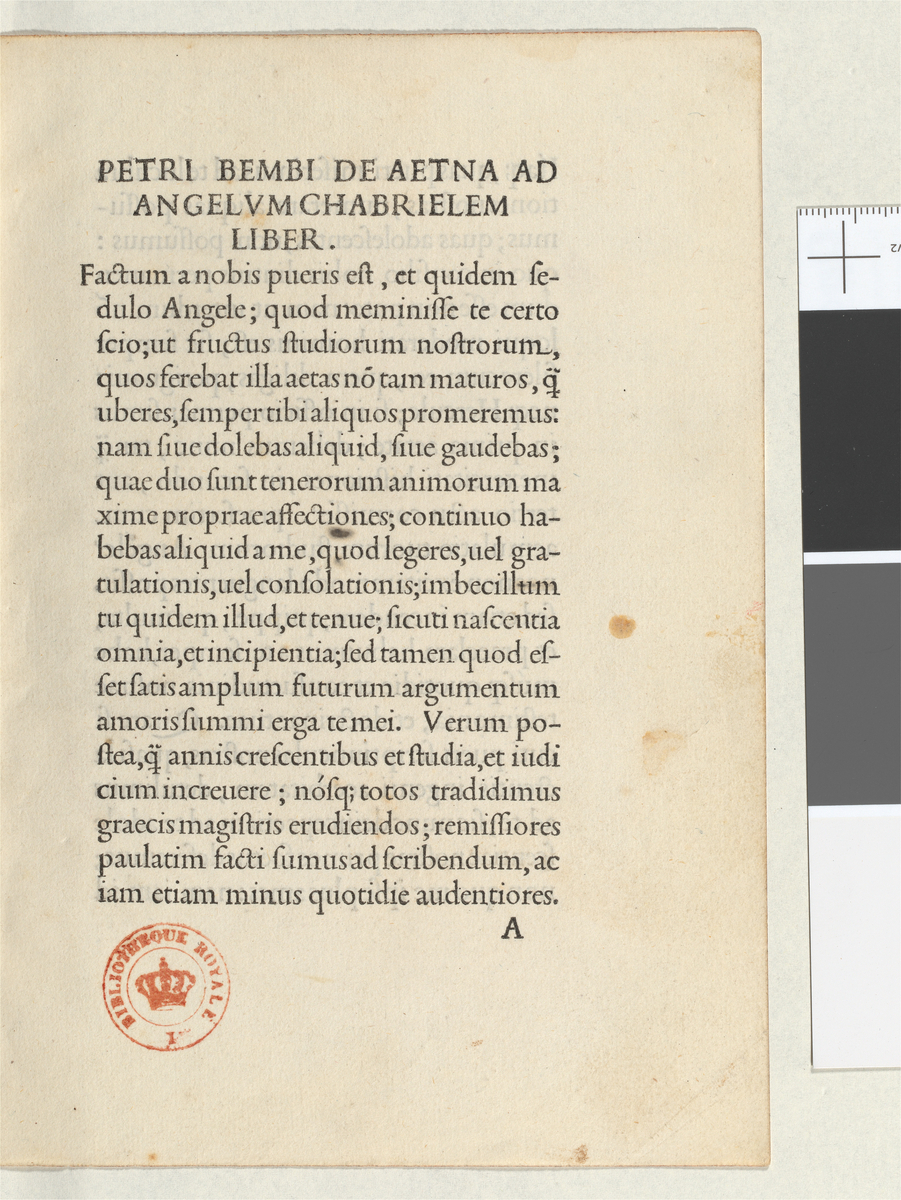 PETRI BEMBI DE AETNA AD
ANGELVM CHABRIELEM
LIBER.
Factum a nobis pueris eſt, et quidem ſe-
dulo Angele; quod meminiſſe te certo
ſcio; ut fructus ſtudiorum noſtrorum,
quos ferebat illa aetas nō tam maturos, q̃
uberes, ſemper tibi aliquos promeremus:
nam ſiue dolebas aliquid, ſiue gaudebas;
quae duo ſunt tenerorum animorum ma
xime propriae affectiones; continuo ha-
bebas aliquid a me, quod legeres, uel gra-
tulationis, uel conſolationis; imbecillum
tu quidem illud, et tenue; ſicuti naſcentia
omnia, et incipientia; ſed tamen quod eſ-
ſet ſatis amplum futurum argumentum
amoris ſummi erga te mei. Verum po-
ſtea, q̃ annis creſcentibus et ſtudia, et iudi
cium increuere; nóſq; totos tradidimus
graecis magiſtris erudiendos; remiſſiores
paulatim facti ſumus ad ſcribendum, ac
iam etiam minus quotidie audentiores.
A
BIBLIOTHEQUE ROYALE